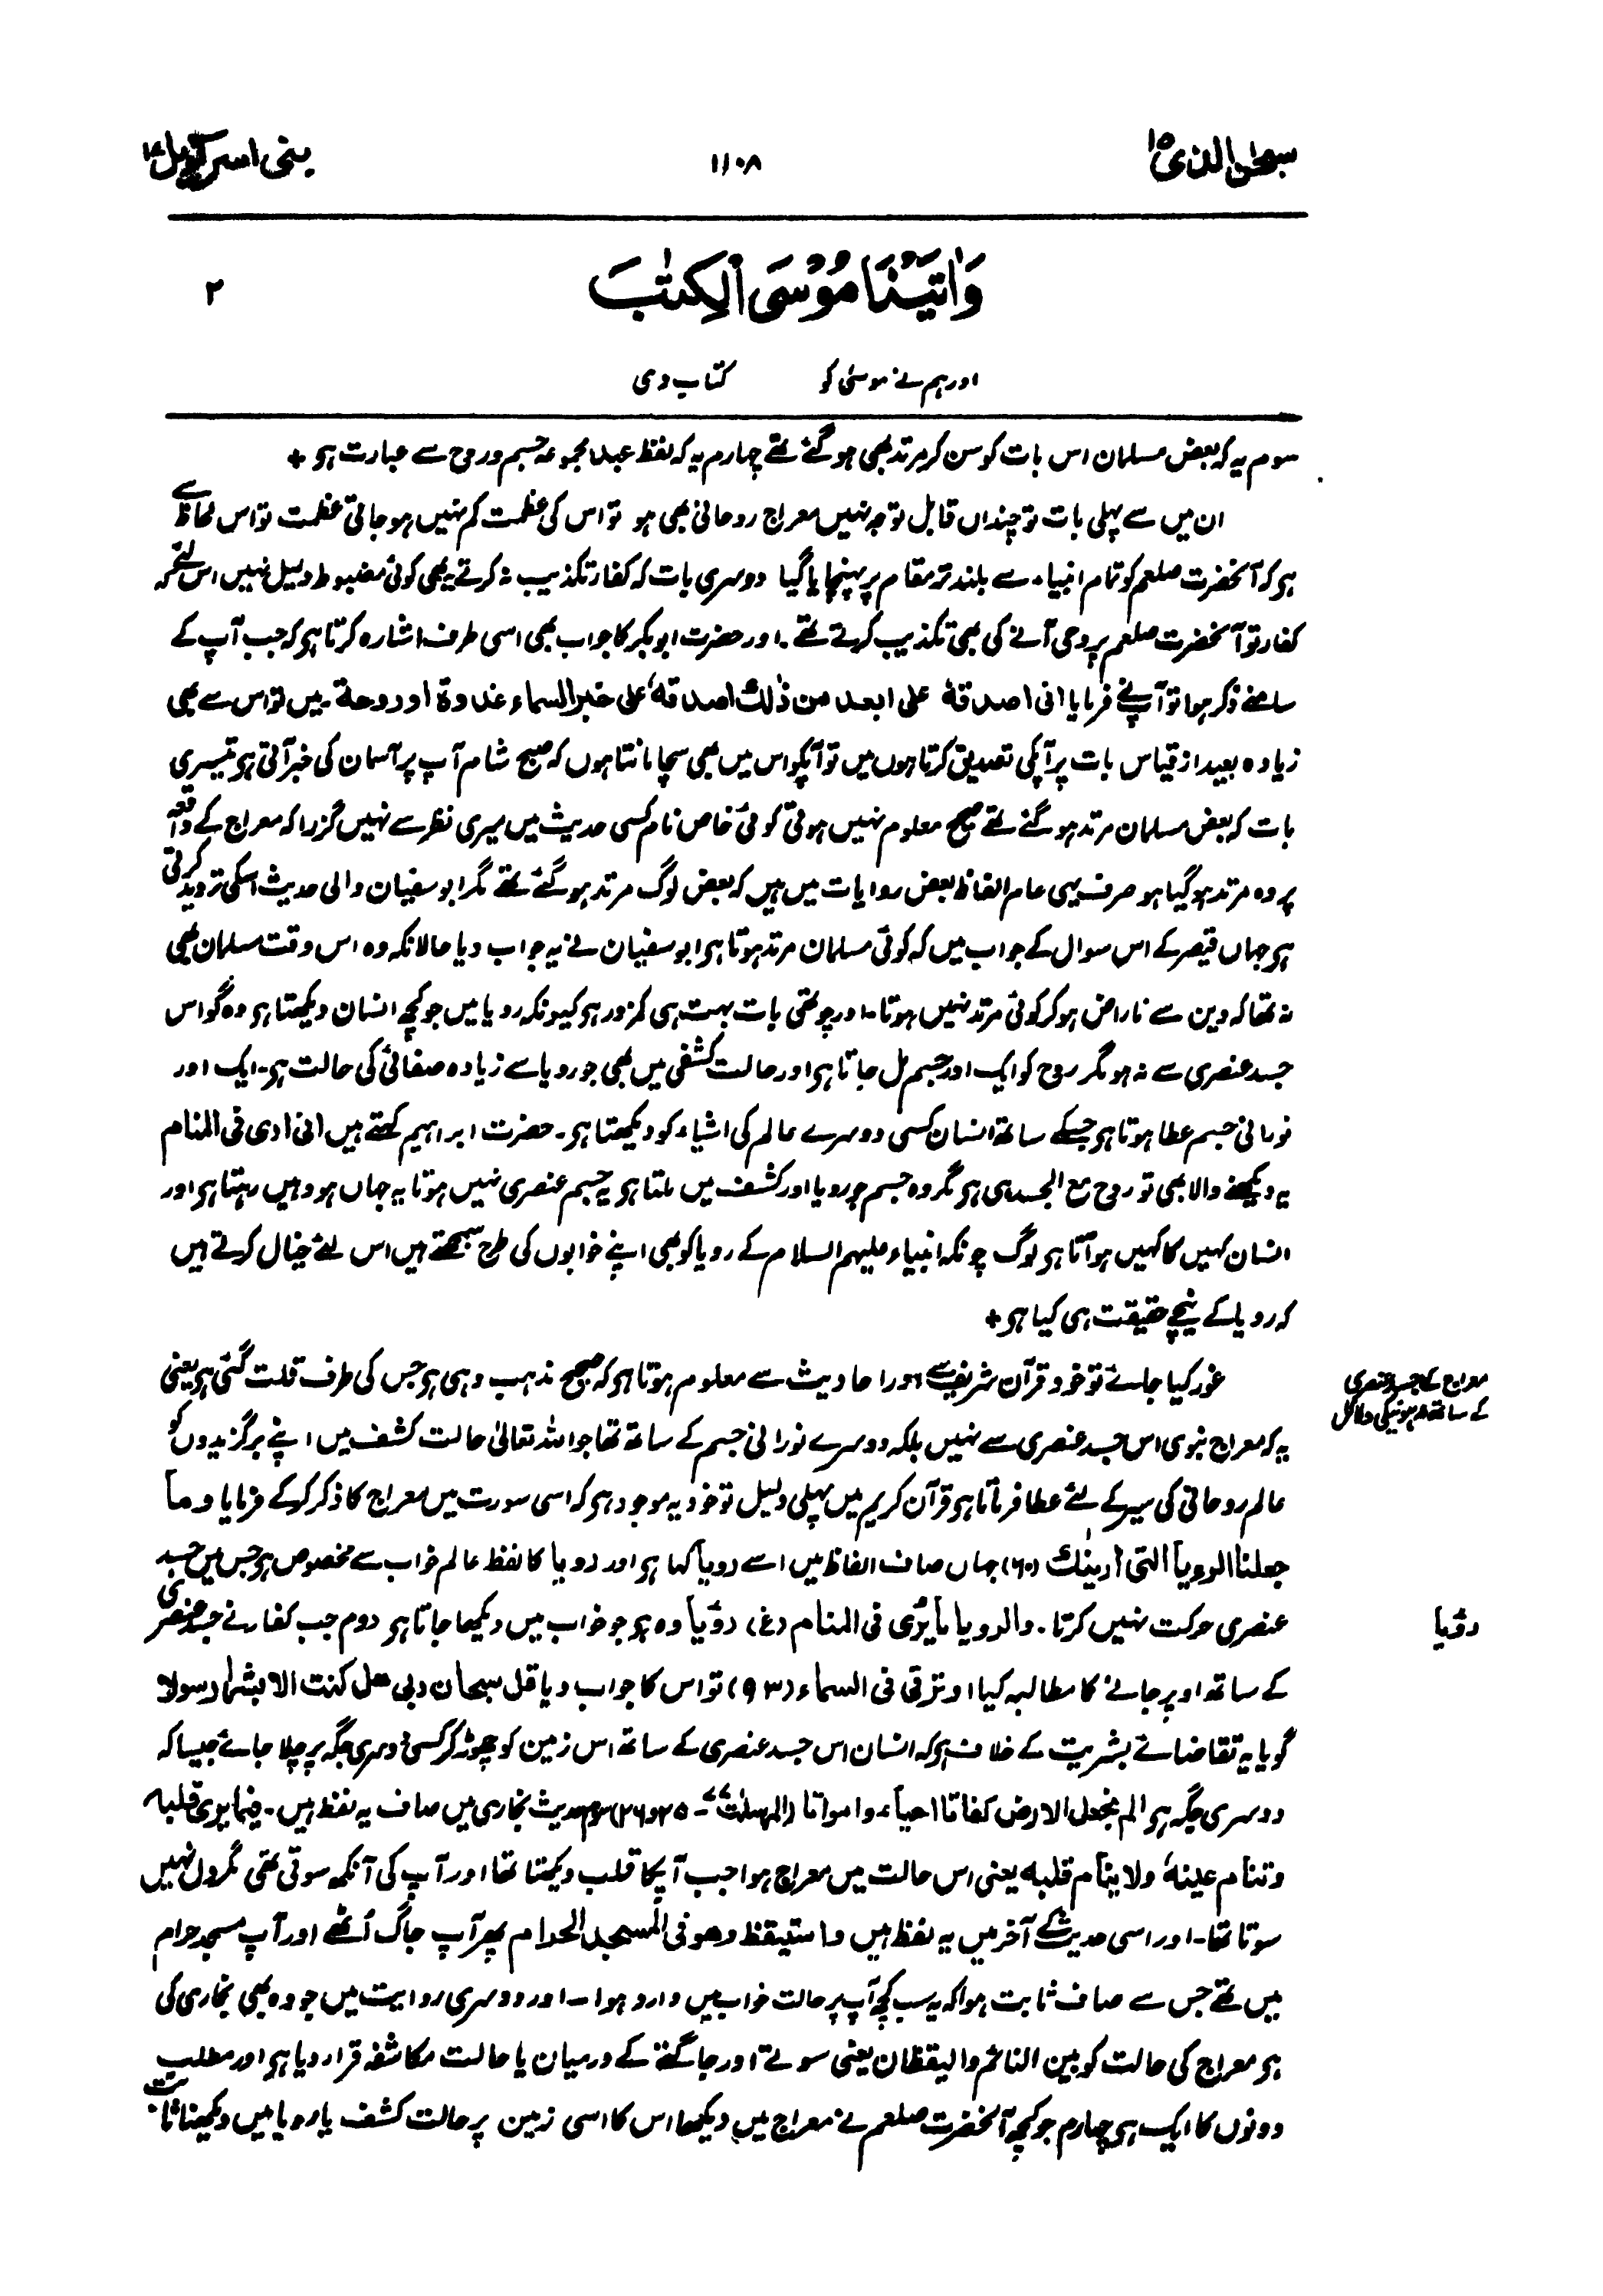 سبحٰن الذی ۱۵
۱۱۰۸
بنی اسرآئیل ۱۷
وَاٰتَیۡنَا مُوۡسَی الۡکِتٰبَ
۲
اور ہم نے موسیٰ کو کتاب دی
سوم یہ کہ بعض مسلمان اس بات کو سن کر مرتد بھی ہو گئے تھے چہارم یہ کہ لفظ عبد مجموعہ جسم و روح سے عبارت ہو +
ان میں سے پہلی بات تو چنداں قابل توجہ نہیں معراج روحانی بھی ہو تو اس کی عظمت کم نہیں ہو جاتی عظمت تو اس لحاظ سے
ہو کہ آنحضرت صلعم کو تمام انبیاء سے بلند تر مقام پر پہنچایا گیا دوسری بات کہ کفار تکذیب نہ کرتے یہ بھی کوئی مضبوط دلیل نہیں اس لئے کہ
کفار تو آنحضرت صلعم پر وحی آنے کی بھی تکذیب کرتے تھے۔ اور حضرت ابوبکر کا جواب بھی اسی طرف اشارہ کرتا ہو کہ جب آپ کے
سامنے ذکر ہوا تو آپنے فرمایا انی اصدقہٗ علی ابعد من ذٰلک اصدقہٗ علی خبر السماء غدوة او روحة۔ میں تو اس سے بھی
زیادہ بعید از قیاس بات پر آپکی تصدیق کرتا ہوں میں تو آپکو اس میں بھی سچا مانتا ہوں کہ صبح شام آپ پر آسمان کی خبر آتی ہو تیسری
بات کہ بعض مسلمان مرتد ہو گئے تھے صحیح معلوم نہیں ہوتی کوئی خاص نام کسی حدیث میں میری نظر سے نہیں گزرا کہ معراج کے واقعہ
پر وہ مرتد ہو گیا ہو صرف یہی عام الفاظ بعض روایات میں ہیں کہ بعض لوگ مرتد ہو گئے تھے مگر ابو سفیان والی حدیث اسکی تردید کرتی
ہو جہاں قیصر کے اس سوال کے جواب میں کہ کوئی مسلمان مرتد ہوتا ہو ابو سفیان نے یہ جواب دیا حالانکہ وہ اس وقت مسلمان بھی
نہ تھا کہ دین سے ناراض ہو کر کوئی مرتد نہیں ہوتا۔ اور چوتھی بات بہت ہی کمزور ہو کیونکہ رویا میں جو کچھ انسان دیکھتا ہو وہ گو اس
جسد عنصری سے نہ ہو مگر روح کو ایک اور جسم مل جاتا ہو اور حالت کشفی میں بھی جو رویا سے زیادہ صفائی کی حالت ہو۔ ایک اور
نورانی جسم عطا ہوتا ہو جسکے ساتھ انسان کسی دوسرے عالم کی اشیاء کو دیکھتا ہو۔ حضرت ابراہیم کہتے ہیں انی ارٰی فی المنام
یہ دیکھنے والا بھی تو روح مع الجسد ہی ہو مگر وہ جسم جو رویا اور کشف میں ملتا ہو یہ جسم عنصری نہیں ہوتا یہ جہاں ہو وہیں رہتا ہو اور
انسان کہیں کا کہیں ہو آتا ہو لوگ چونکہ انبیاء علیہم السلام کے رویا کو بھی اپنے خوابوں کی طرح سمجھتے ہیں اس لئے خیال کرتے ہیں
کہ رویا کے نیچے حقیقت ہی کیا ہو +
معراج کے جسد عنصری
کے ساتھ نہ ہونیکے دلائل
غور کیا جائے تو خود قرآن شریف سے اور احادیث سے معلوم ہوتا ہو کہ صحیح مذہب وہی ہو جس کی طرف قلت گئی ہو یعنی
یہ کہ معراج نبوی اس جسد عنصری سے نہیں بلکہ دوسرے نورانی جسم کے ساتھ تھا جو اللہ تعالیٰ حالت کشف میں اپنے برگزیدوں کو
عالم روحانی کی سیر کے لئے عطا فرماتا ہو قرآن کریم میں پہلی دلیل تو خود یہ موجود ہو کہ اسی سورت میں معراج کا ذکر کرکے فرمایا وما
جعلنا الرویا التی ارینٰک (۶۰) جہاں صاف الفاظ میں اسے رویا کہا ہو اور رویا کا لفظ عالم خواب سے مخصوص ہو جس میں جسد
رؤیا
عنصری حرکت نہیں کرتا۔ والرویا ما یرٰی فی المنام (غ) رؤیا وہ ہو جو خواب میں دیکھا جاتا ہو دوم جب کفار نے جسد عنصری
کے ساتھ اوپر جانے کا مطالبہ کیا او ترقی فی السماء (۹۳) تو اس کا جواب دیا قل سبحان ربی ھل کنت الا بشرا رسولا
گویا یہ تقاضائے بشریت کے خلاف ہو کہ انسان اس جسد عنصری کے ساتھ اس زمین کو چھوڑ کر کسی دوسری جگہ پر چلا جائے جیسا کہ
دوسری جگہ ہو الم نجعل الارض کفاتا احیاء وامواتا (المرسلٰت ۷۷۔ ۲۵ و ۲۶) سوم حدیث بخاری میں صاف یہ لفظ ہیں۔ فیما یری قلبہ
وتنام عینہٗ ولا ینام قلبہ یعنی اس حالت میں معراج ہوا جب آپکا قلب دیکھتا تھا اور آپ کی آنکھ سوتی تھی مگر دل نہیں
سوتا تھا۔ اور اسی حدیث کے آخر میں یہ لفظ ہیں واستیقظ وھو فی المسجد الحرام پھر آپ جاگ اُٹھے اور آپ مسجد حرام
میں تھے جس سے صاف ثابت ہوا کہ یہ سب کچھ آپ پر حالت خواب میں وارد ہوا۔ اور دوسری روایت میں جو وہ بھی بخاری کی
ہو معراج کی حالت کو بین النائم والیقظان یعنی سوتے اور جاگتے کے درمیان یا حالت مکاشفہ قرار دیا ہو اور مطلب
دونوں کا ایک ہو چہارم جو کچھ آنحضرت صلعم نے معراج میں دیکھا اس کا اسی زمین پر حالت کشف یا رویا میں دیکھنا ثابت